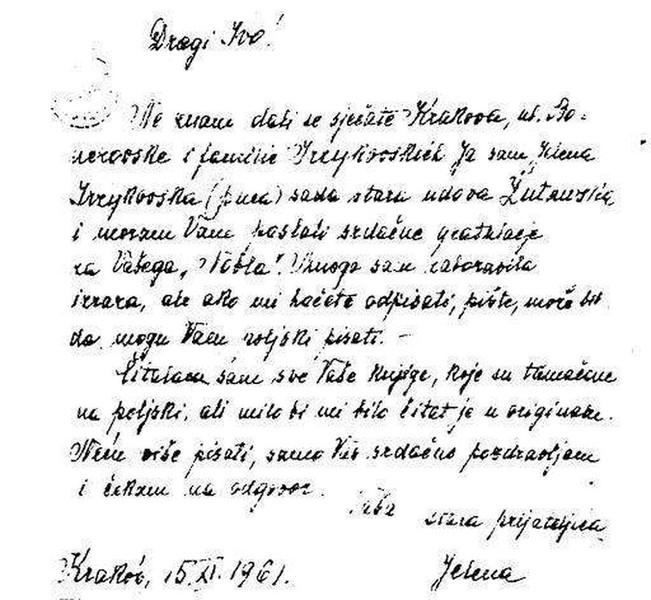 Dragi Ivo!
Ne znam dali se sjećate Krakova, ul. Bo-
nerovske i familie Irzykovskich Ja sam Jelena
Irzykovska (puca) sada stara udova Żuławska
i moram Vam poslati srdačne gratulacje
za Vašega „Nobla”. Mnogo sam zaboravila
izraza, ale ako mi hoćete odpisati, pište, može bit
da mogu Vam poljski pisati. —
Čitalam sam sve Vaše knjige, koje su tumačene
na poljski, ali milo bi mi bilo čitat je u originale.
Neću više pisati, samo Vas srdačno pozdravljam
i čekam na odgovor.
Vaša stara prijateljica
Kraków, 15.XI.1961. Jelena